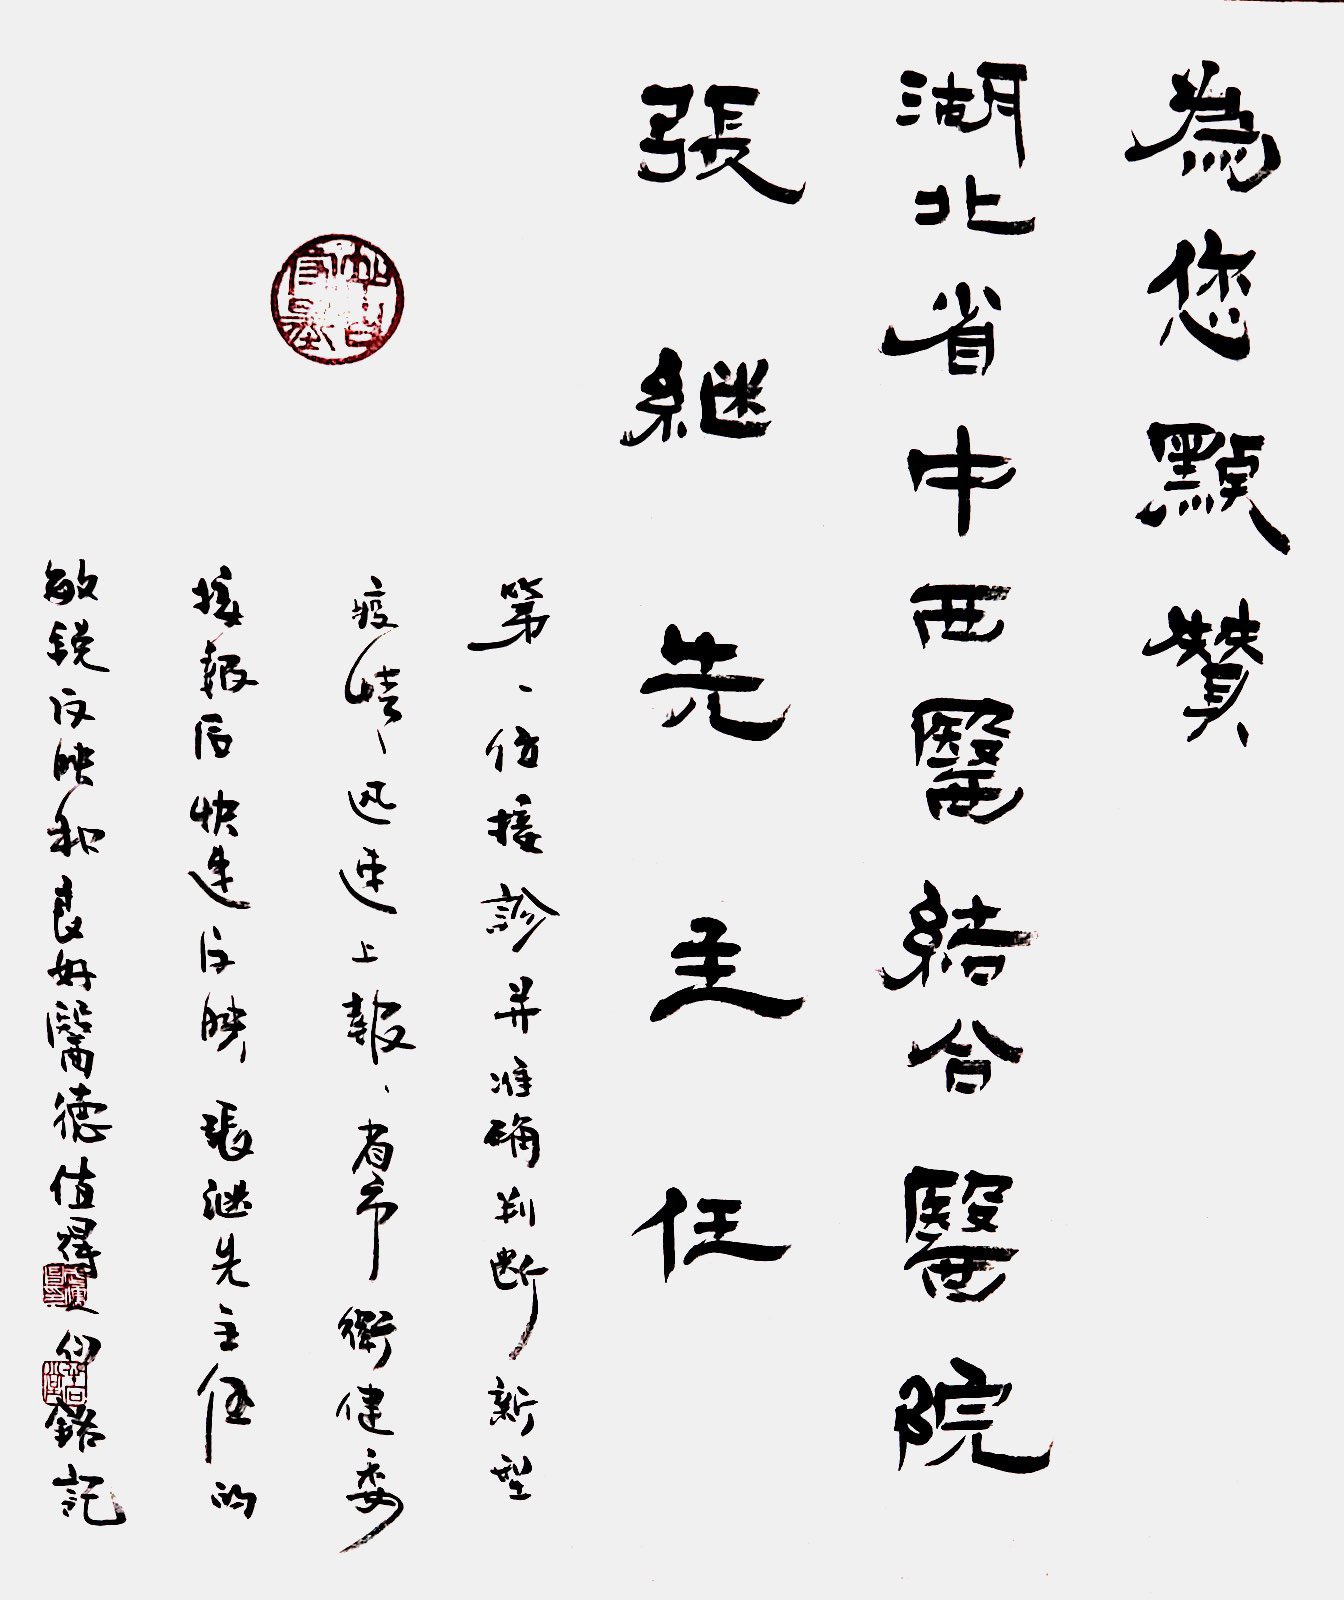 為您點贊
湖北省中西醫結合醫院
張继先主任
第一位接診并准确判断新型
疫情、迅速上報、省市衛健委
接報后快速反映 張继先主任的
敏锐反映和良好醫德值得
銘記